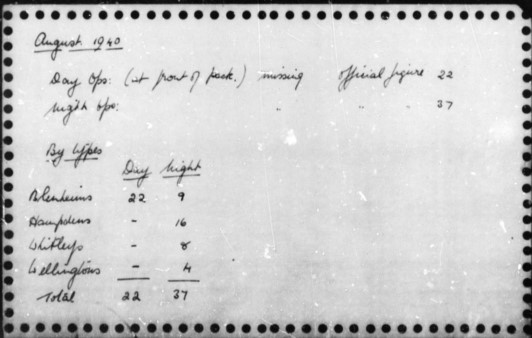 August 1940
Day Ops: (at front of pack.) missing official figure 22
Night Ops: " " " 37
By types
Day Night
Blenheims 22 9
Hampdens - 16
Whitleys - 8
Wellingtons - 4
Total 22 37